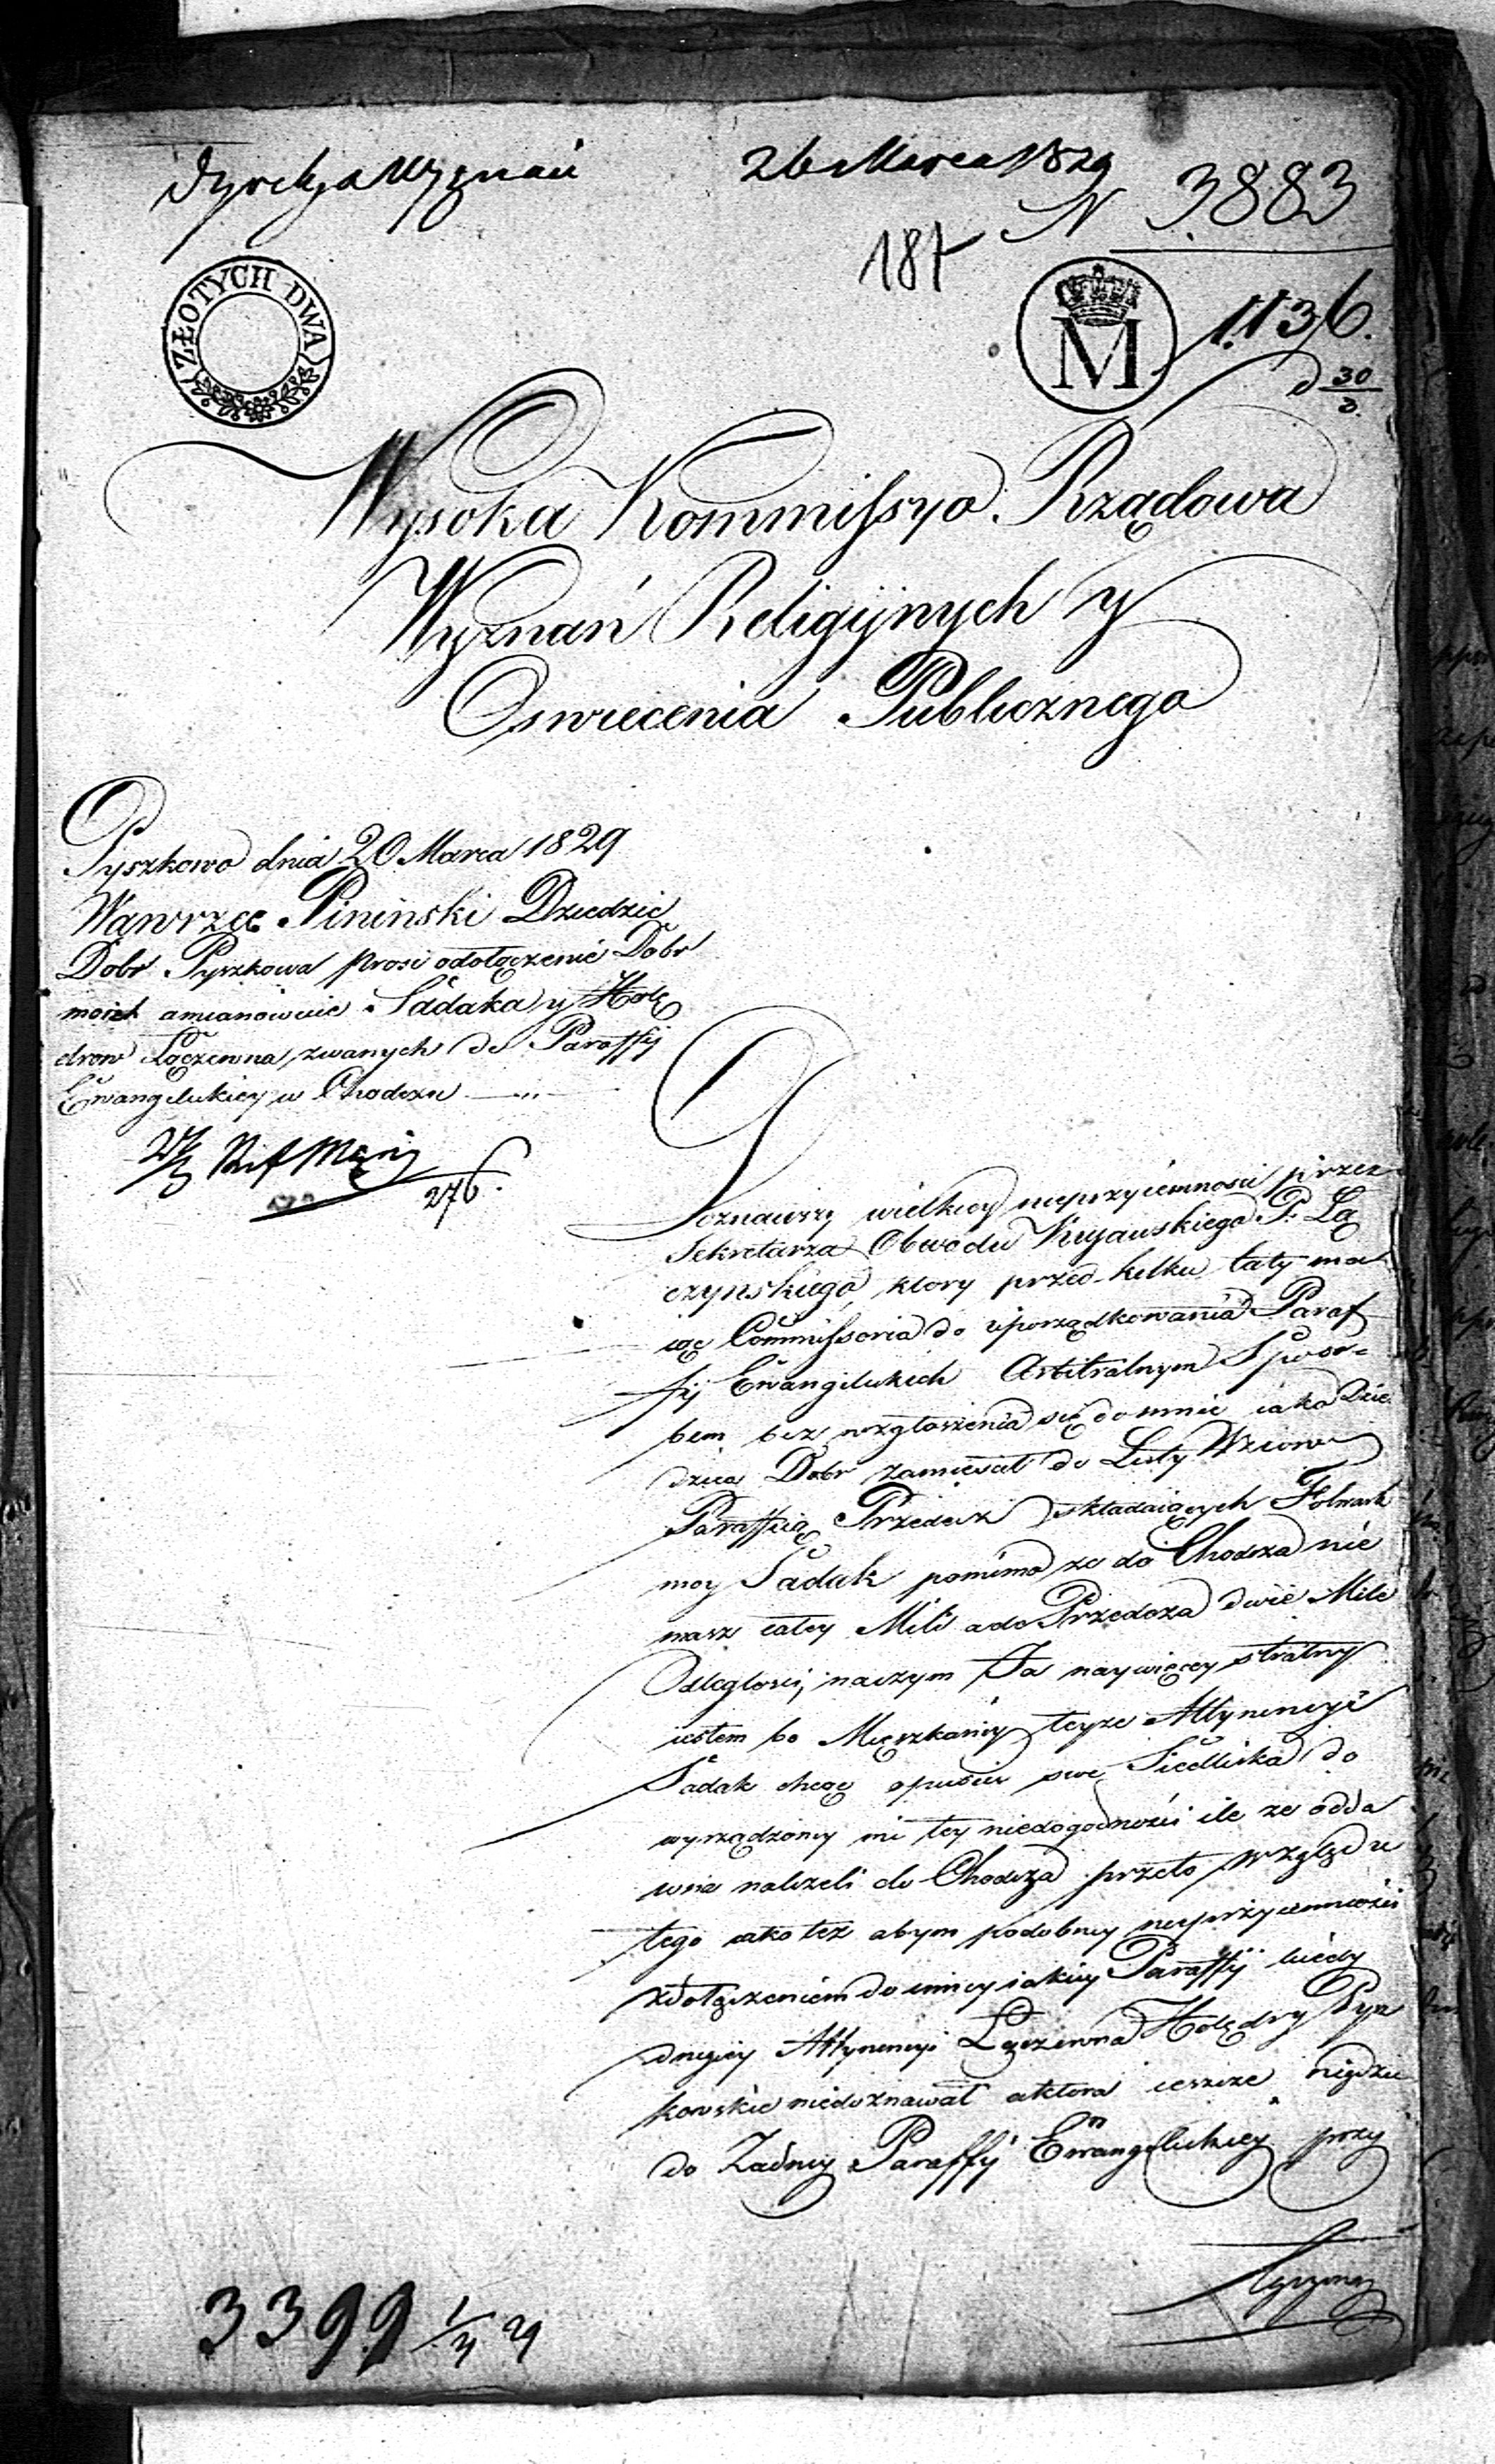 Dyrekcja Wyznań 26 Marca 1829
N 3883
187
ZŁOTYCH DWA
M
1136.
d 30/3.
Wysoka Kommissya Rządowa
Wyznań Religijnych y
Oswiecenia Publicznego
Pyszkowo dnia 20 Marca 1829
Wawrzec Pininski Dziedzic
Dobr Pyszkowa prosi odołączenie Dobr
moich amianowicie Sadaka y Holę
drow Łączewna zwanych do Paraffij
Ewangelickiey w Chodczu
276.
Doznawszy wielkiey nieprzyiemnosci przez
Sekretarza Obwodu Kujawskiego P. Łą
czynskiego, ktory przed kilku laty ma
iąc Commissoria do uporządkowania Paraf
fij Ewangelickich Arbitralnym Sposo
bem bez wzgłoszenia się do mnie iako Dzie
dzica Dobr zamiescił do Listy Wziow
Paraffią Przedecz składaiących Folwark
moy Sadak pomimo ze do Chodcza nie
masz całey Mili a do Przedcza dwie Mile
Odległosci, na czym Ja naywięcey stratny
iestem bo Mięszkańcy teyze Attynencyi
Sadak chcąc opuscić swe Siedliska do
wyrządzoney mi tey niedogodności ile ze odda
wna należeli do Chodcza przeto względu
tego iako też abym podobney nieprzyiemności
zdołączeniem do inney iakiey Paraffij kiedy
drugiey Attynencyi Łączewna Holędry Pysz
kowskie niedoznawał aktora ieszcze nigdzie
do Żadney Paraffij Ewangelickiey przy
łączona
3399 1/4 29